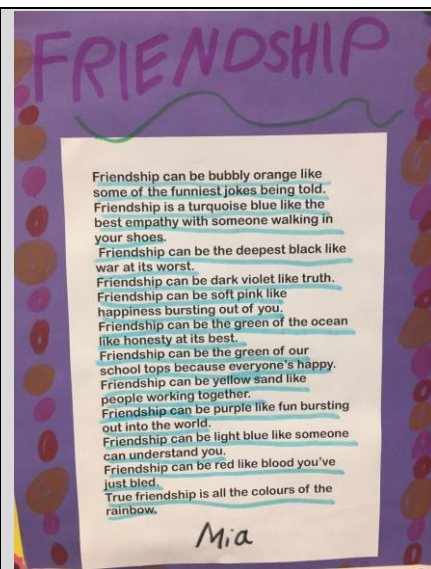 FRIENDSHIP
Friendship can be bubbly orange like
some of the funniest jokes being told.
Friendship is a turquoise blue like the
best empathy with someone walking in
your shoes.
Friendship can be the deepest black like
war at its worst.
Friendship can be dark violet like truth.
Friendship can be soft pink like
happiness bursting out of you.
Friendship can be the green of the ocean
like honesty at its best.
Friendship can be the green of our
school tops because everyone's happy.
Friendship can be yellow sand like
people working together.
Friendship can be purple like fun bursting
out into the world.
Friendship can be light blue like someone
can understand you.
Friendship can be red like blood you've
just bled.
True friendship is all the colours of the
rainbow.
Mia